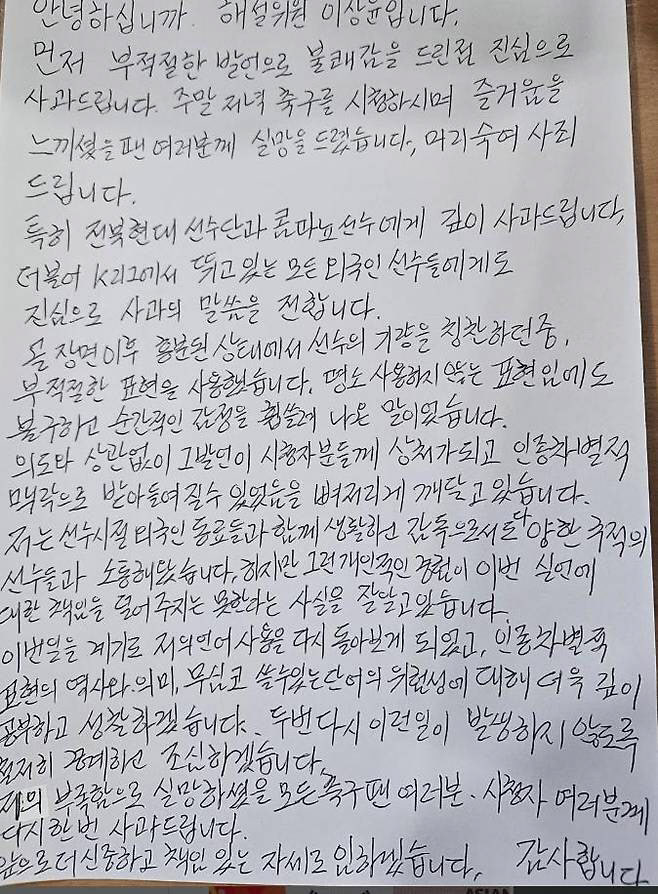 안녕하십니까. 해설위원 이상윤입니다.
먼저 부적절한 발언으로 불쾌감을 드린점 진심으로
사과드립니다. 주말 저녁 축구를 시청하시며 즐거움을
느끼셨을 팬 여러분께 실망을 드렸습니다, 머리숙여 사죄
드립니다.
특히 전북현대 선수단과 콤파뇨선수에게 깊이 사과드립니다,
더불어 K리그에서 뛰고 있는 모든 외국인 선수들에게도
진심으로 사과의 말씀을 전합니다.
골 장면이후 흥분된 상태에서 선수의 기량을 칭찬하던중,
부적절한 표현을 사용했습니다. 평소 사용하지 않는 표현임에도
불구하고 순간적인 감정을 휩쓸려 나온 말이었습니다.
의도와 상관없이 그발언이 시청자분들께 상처가되고 인종차별적
맥락으로 받아들여 질수 있었음을 뼈저리게 깨닫고 있습니다.
저는 선수시절 외국인 동료들과 함께 생활하고 감독으로서도 다양한 국적의
선수들과 소통해왔습니다, 하지만 그런 개인적인 경험이 이번 실언에
대한 책임을 덜어 주지는 못한다는 사실을 잘알고 있습니다.
이번일을 계기로 저의언어 사용을 다시 돌아보게 되었고, 인종차별적
표현의 역사와 의미, 무심코 쓸수있는 단어의 위험성에 대해 더욱 깊이
공부하고 성찰하겠습니다. 두번다시 이런일이 발생하지 않도록
철저히 경계하고 조심하겠습니다,
저의 부족함으로 실망하셨을 모든축구팬 여러분. 시청자 여러분께
다시한번 사과드립니다.
앞으로 더 신중하고 책임 있는 자세로 임하겠습니다, 감사합니다